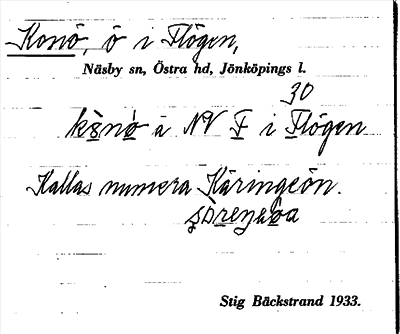 Konö, ö i Flögen,
Näsby sn, Östra hd, Jönköpings l.
30
å NV F i Flögen
Kallas numera Käringeön.
Stig Bäckstrand 1933.